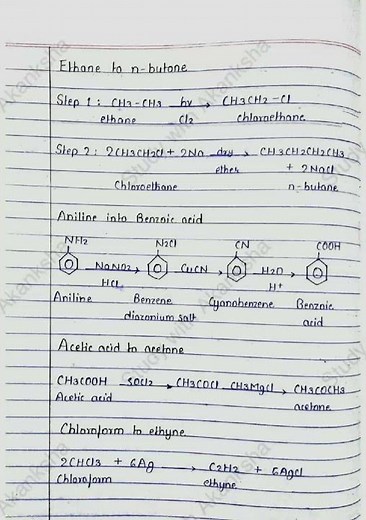 Ethane to n-butane
Step 1: CH3-CH3 hv → CH3CH2-Cl
ethane Cl2 chloroethane
Step 2: 2CH3CH2Cl + 2Na dry → CH3CH2CH2CH3
ether + 2NaCl
Chloroethane n-butane
Aniline into Benzoic acid
NH2 N2Cl CN COOH
NaNO2 → CuCN → H2O →
HCl H+
Aniline Benzene Cyanobenzene Benzoic
diazonium salt acid
Acetic acid to acetone
CH3COOH SOCl2 → CH3COCl CH3MgCl → CH3COCH3
Acetic acid acetone
Chloroform to ethyne
2CHCl3 + 6Ag → C2H2 + 6AgCl
Chloroform ethyne
Study with Akanksha